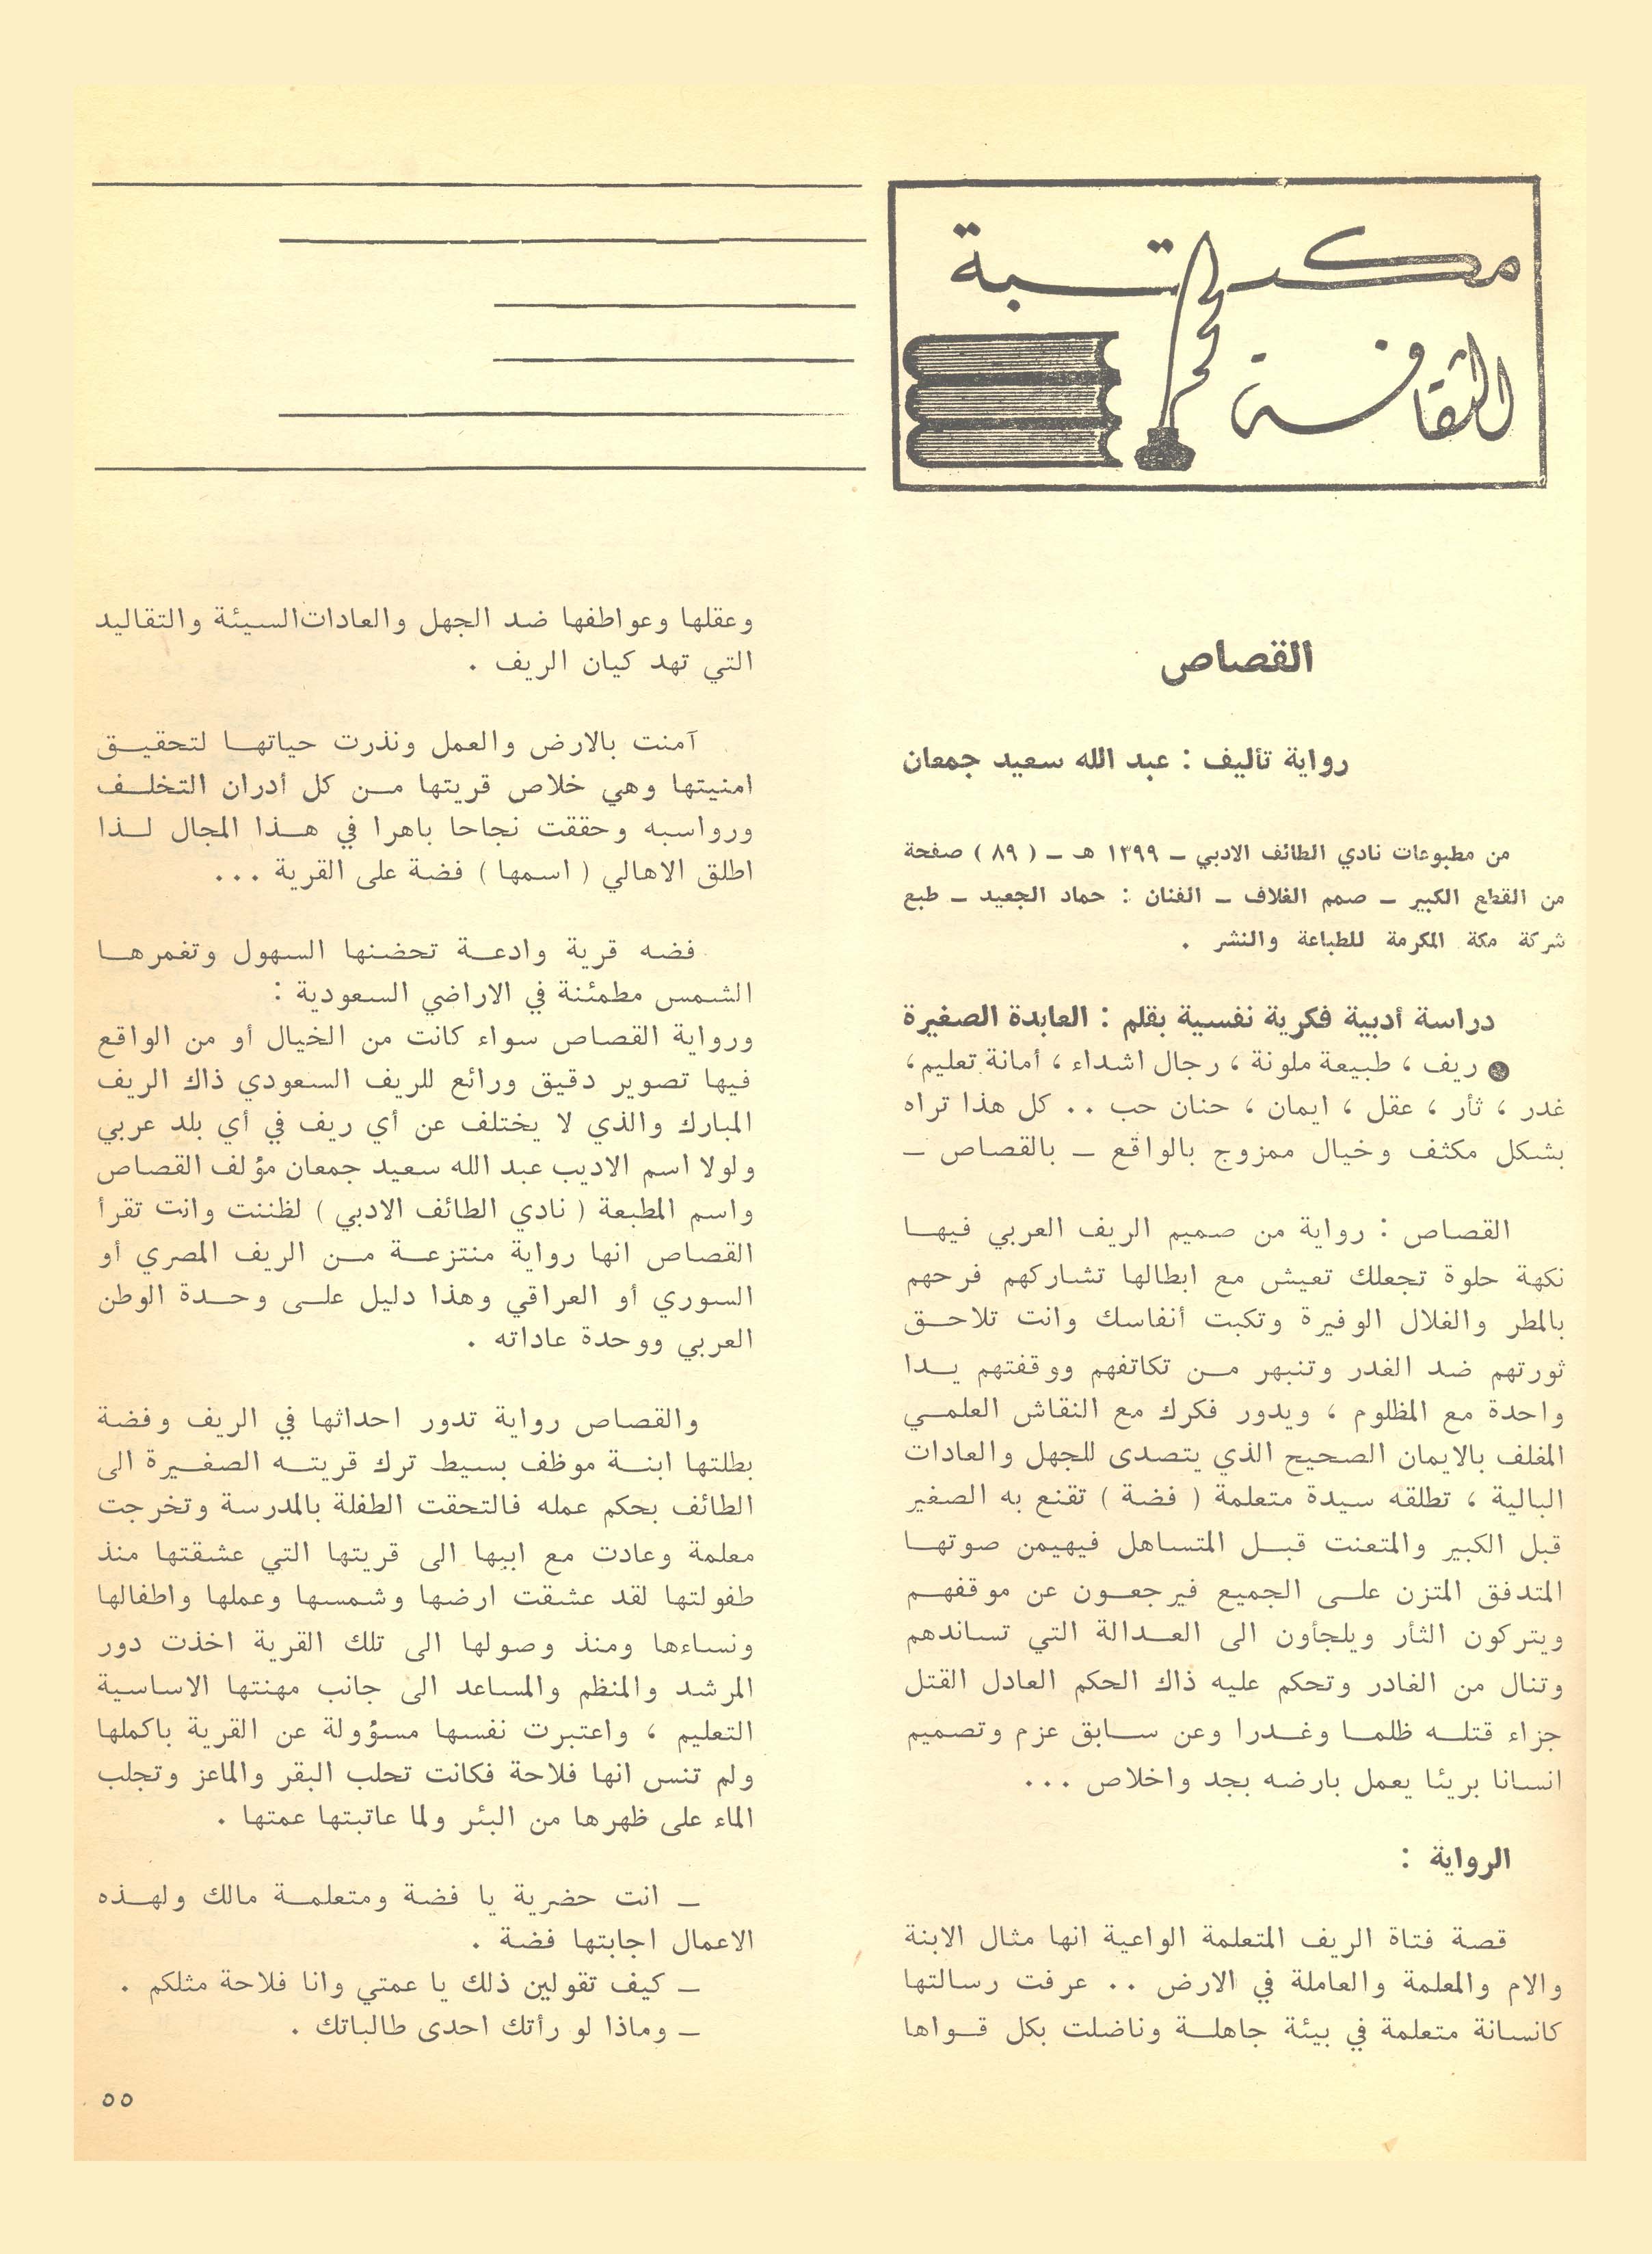 مكتبة
الثقافة
القصاص
رواية تأليف : عبد الله سعيد جمعان
من مطبوعات نادي الطائف الادبي – ١٣٩٩ هـ – ( ٨٩ ) صفحة
من القطع الكبير – صمم الغلاف – الفنان : حماد الجعيد – طبع
شركة مكة المكرمة للطباعة والنشر .
دراسة أدبية فكرية نفسية بقلم : العابدة الصغيرة
● ريف ، طبيعة ملونة ، رجال اشداء ، أمانة تعليم ،
غدر ، ثأر ، عقل ، ايمان ، حنان حب .. كل هذا تراه
بشكل مكثف وخيال ممزوج بالواقع – بالقصاص –
القصاص : رواية من صميم الريف العربي فيها
نكهة حلوة تجعلك تعيش مع ابطالها تشاركهم فرحهم
بالمطر والغلال الوفيرة وتكبت أنفاسك وانت تلاحق
ثورتهم ضد الغدر وتنبهر من تكاتفهم ووقفتهم يدا
واحدة مع المظلوم ، ويدور فكرك مع النقاش العلمي
المغلف بالايمان الصحيح الذي يتصدى للجهل والعادات
البالية ، تطلقه سيدة متعلمة ( فضة ) تقنع به الصغير
قبل الكبير والمتعنت قبل المتساهل فيهيمن صوتها
المتدفق المتزن على الجميع فيرجعون عن موقفهم
ويتركون الثأر ويلجأون الى العدالة التي تساندهم
وتنال من الغادر وتحكم عليه ذاك الحكم العادل القتل
جزاء قتله ظلما وغدرا وعن سابق عزم وتصميم
انسانا بريئا يعمل بارضه بجد واخلاص ...
الرواية :
قصة فتاة الريف المتعلمة الواعية انها مثال الابنة
والام والمعلمة والعاملة في الارض .. عرفت رسالتها
كانسانة متعلمة في بيئة جاهلة وناضلت بكل قواها
وعقلها وعواطفها ضد الجهل والعادات السيئة والتقاليد
التي تهد كيان الريف .
آمنت بالارض والعمل ونذرت حياتها لتحقيق
امنيتها وهي خلاص قريتها من كل أدران التخلف
ورواسبه وحققت نجاحا باهرا في هذا المجال لذا
اطلق الاهالي ( اسمها ) فضة على القرية ...
فضه قرية وادعة تحضنها السهول وتغمرها
الشمس مطمئنة في الاراضي السعودية :
ورواية القصاص سواء كانت من الخيال أو من الواقع
فيها تصوير دقيق ورائع للريف السعودي ذاك الريف
المبارك والذي لا يختلف عن أي ريف في أي بلد عربي
ولولا اسم الاديب عبد الله سعيد جمعان مؤلف القصاص
واسم المطبعة ( نادي الطائف الادبي ) لظننت وانت تقرأ
القصاص انها رواية منتزعة من الريف المصري أو
السوري أو العراقي وهذا دليل على وحدة الوطن
العربي ووحدة عاداته .
والقصاص رواية تدور احداثها في الريف وفضة
بطلتها ابنة موظف بسيط ترك قريته الصغيرة الى
الطائف بحكم عمله فالتحقت الطفلة بالمدرسة وتخرجت
معلمة وعادت مع ابيها الى قريتها التي عشقتها منذ
طفولتها لقد عشقت ارضها وشمسها وعملها واطفالها
ونساءها ومنذ وصولها الى تلك القرية اخذت دور
المرشد والمنظم والمساعد الى جانب مهنتها الاساسية
التعليم ، واعتبرت نفسها مسؤولة عن القرية باكملها
ولم تنس انها فلاحة فكانت تحلب البقر والماعز وتجلب
الماء على ظهرها من البئر ولما عاتبتها عمتها .
– انت حضرية يا فضة ومتعلمة مالك ولهذه
الاعمال اجابتها فضة .
– كيف تقولين ذلك يا عمتي وانا فلاحة مثلكم .
– وماذا لو رأتك احدى طالباتك .
٥٥